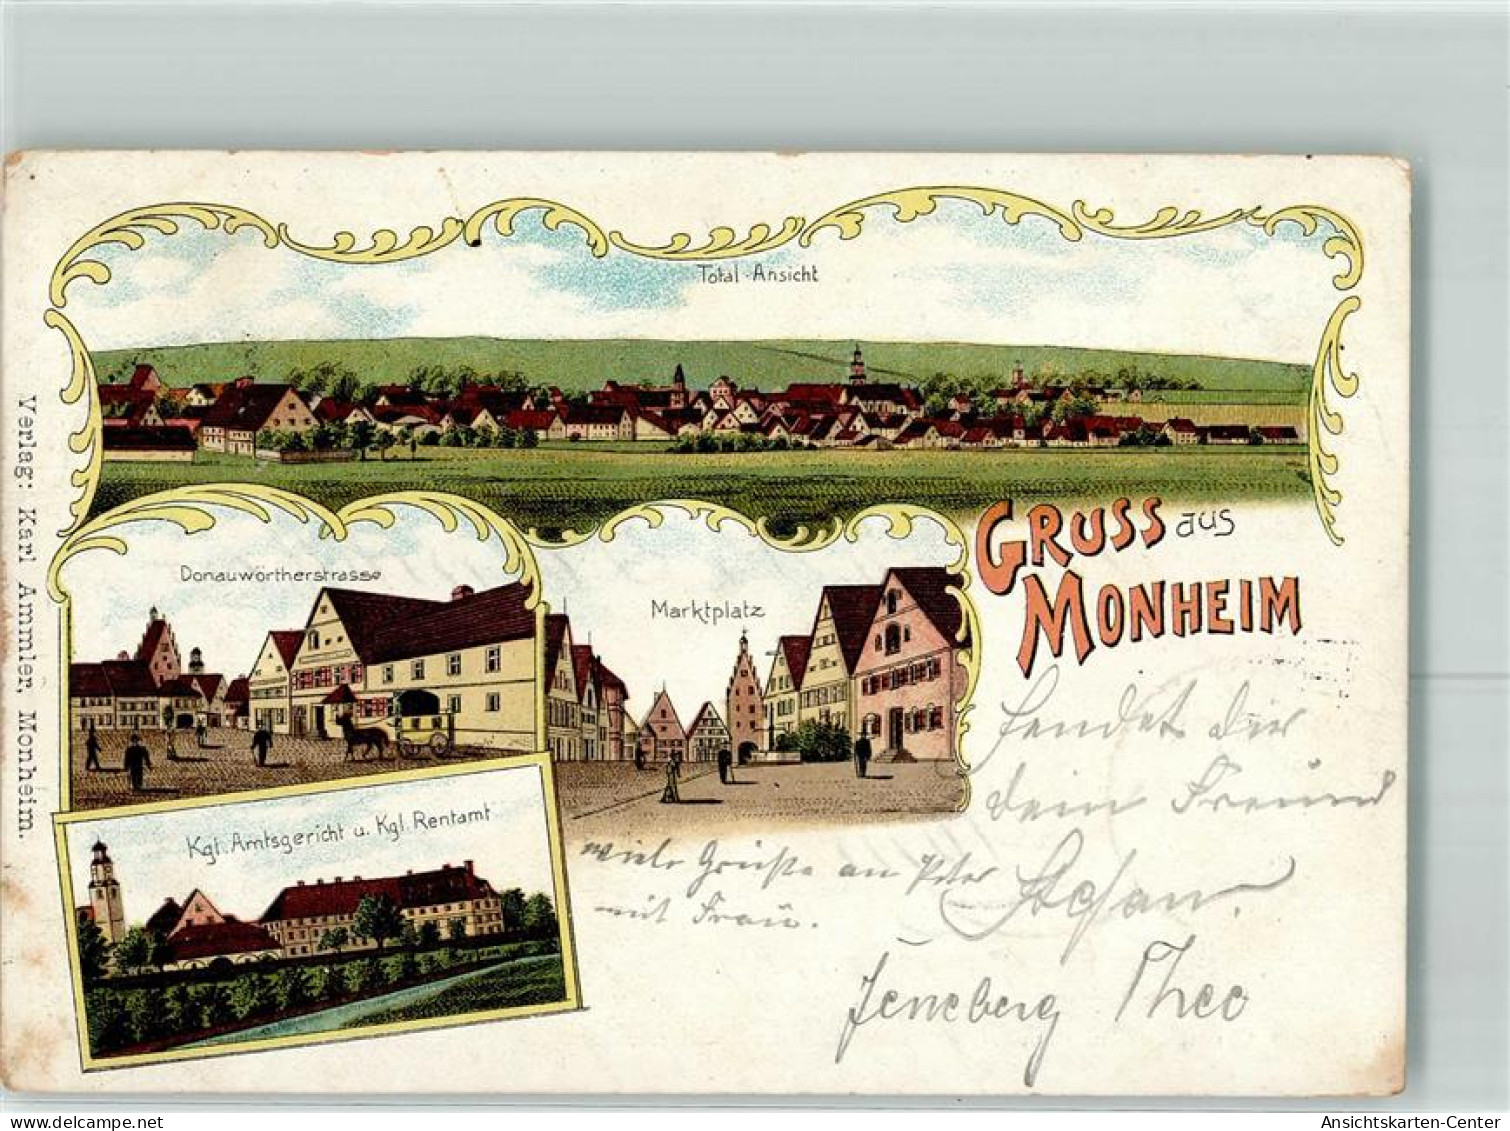 Total-Ansicht
GRUSS aus
MONHEIM
Donauwörtherstrasse
Marktplatz
Kgl. Amtsgericht u. Kgl. Rentamt
Verlag: Karl Ammler, Monheim.
sendet dir
dein Freund
viele Grüße an Peter
mit Frau.
Jeneberg Theo
delcampe.net
Ansichtskarten-Center